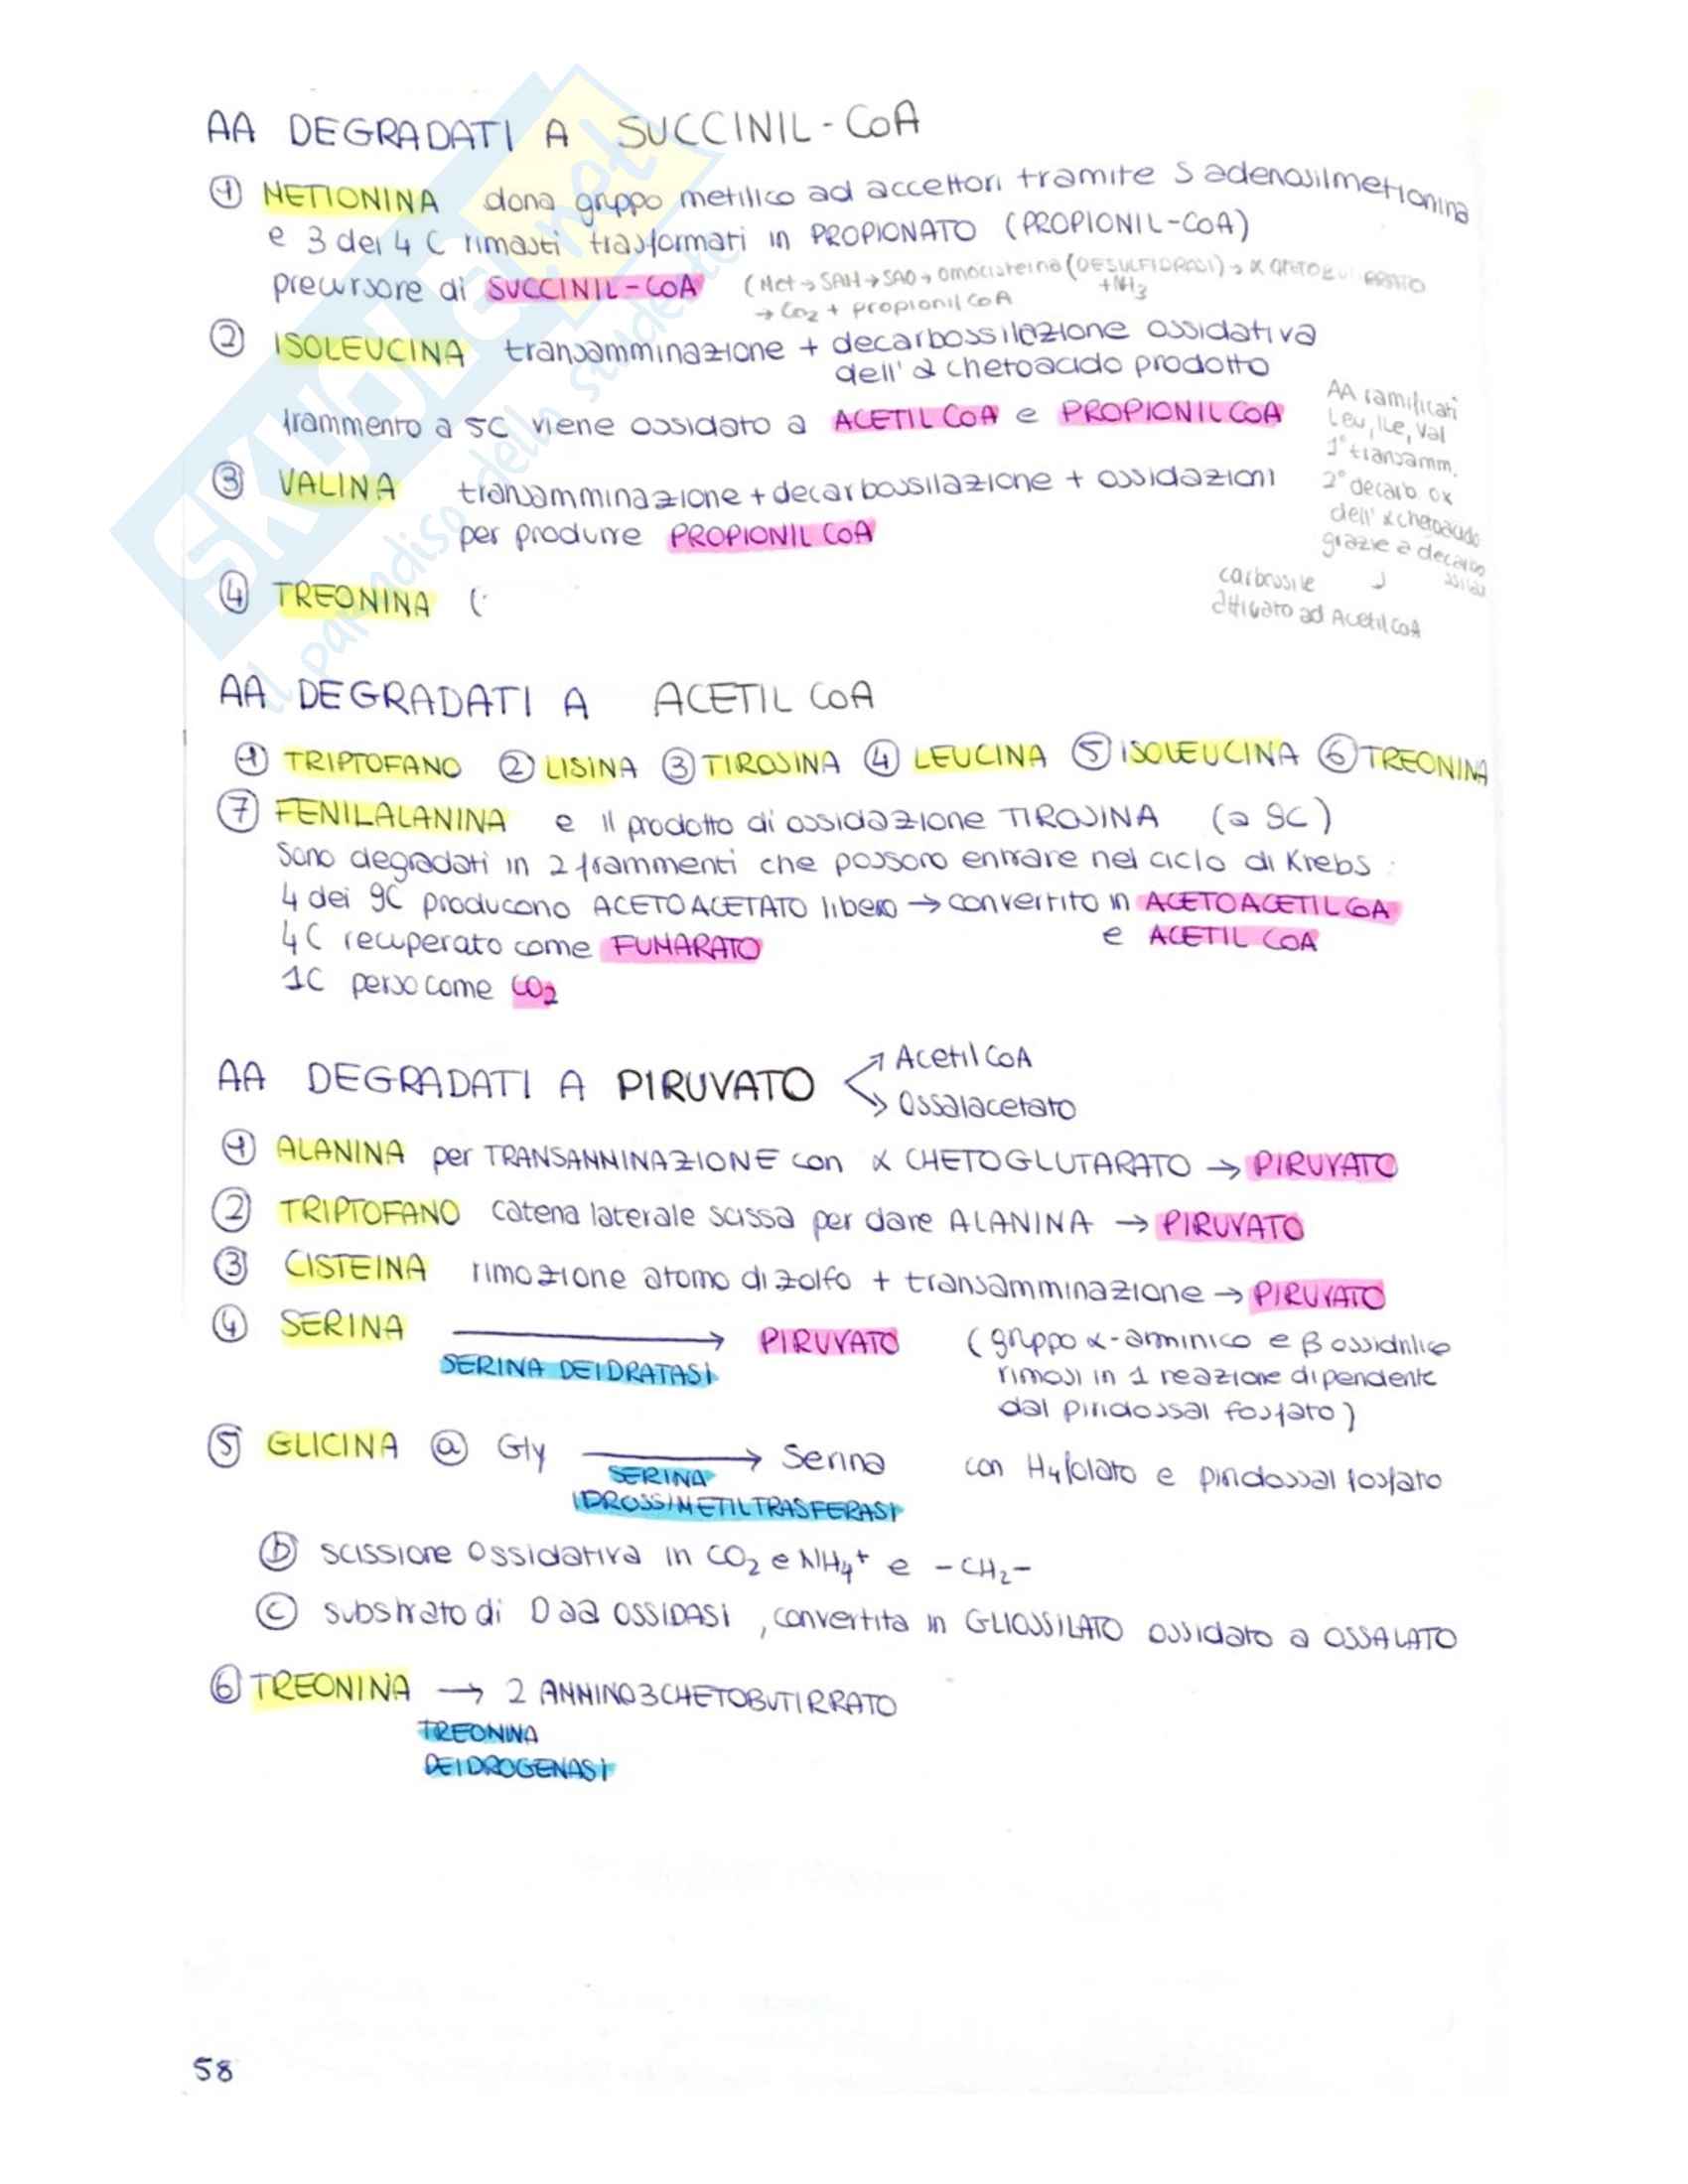 AA DEGRADATI A SUCCINIL-CoA
① METIONINA dona gruppo metilico ad accettori tramite S adenosilmetionina
e 3 dei 4 C rimasti trasformati in PROPIONATO (PROPIONIL-CoA)
precursore di SUCCINIL-CoA (Met → SAM → SAO → omocisteina (DESULFIDRASI) → α CHETOBUTIRRATO
+NH3
→ CO2 + propionil CoA
② ISOLEUCINA transamminazione + decarbossilazione ossidativa
dell'α chetoacido prodotto
frammento a 5C viene ossidato a ACETIL CoA e PROPIONIL CoA
AA ramificati
Leu, Ile, Val
1° transamm.
2° decarb ox
dell'α chetoacido
grazie a decarbo
ssilasi
carbossile
attivato ad Acetil CoA
③ VALINA transamminazione + decarbossilazione + ossidazioni
per produrre PROPIONIL CoA
④ TREONINA (
AA DEGRADATI A ACETIL CoA
① TRIPTOFANO ② LISINA ③ TIROSINA ④ LEUCINA ⑤ ISOLEUCINA ⑥ TREONINA
⑦ FENILALANINA e il prodotto di ossidazione TIROSINA (a 9C)
sono degradati in 2 frammenti che possono entrare nel ciclo di Krebs :
4 dei 9C producono ACETOACETATO libero → convertito in ACETOACETIL CoA
e ACETIL CoA
4C recuperato come FUMARATO
1C perso come CO2
AA DEGRADATI A PIRUVATO
Acetil CoA
Ossalacetato
① ALANINA per TRANSAMMINAZIONE con α CHETOGLUTARATO → PIRUVATO
② TRIPTOFANO catena laterale scissa per dare ALANINA → PIRUVATO
③ CISTEINA rimozione atomo di zolfo + transamminazione → PIRUVATO
④ SERINA → PIRUVATO (gruppo α-amminico e β ossidrilico
SERINA DEIDRATASI
rimossi in 1 reazione dipendente
dal piridossal fosfato)
⑤ GLICINA ⓐ Gly → Serina con H4folato e piridossal fosfato
SERINA
IDROSSIMETILTRASFERASI
ⓑ scissione ossidativa in CO2 e NH4+ e -CH2-
ⓒ substrato di D aa OSSIDASI, convertita in GLIOSSILATO ossidato a OSSALATO
⑥ TREONINA → 2 AMMINO3CHETOBUTIRRATO
TREONINA
DEIDROGENASI
58
SKUOLA.net
il paradiso dello studente